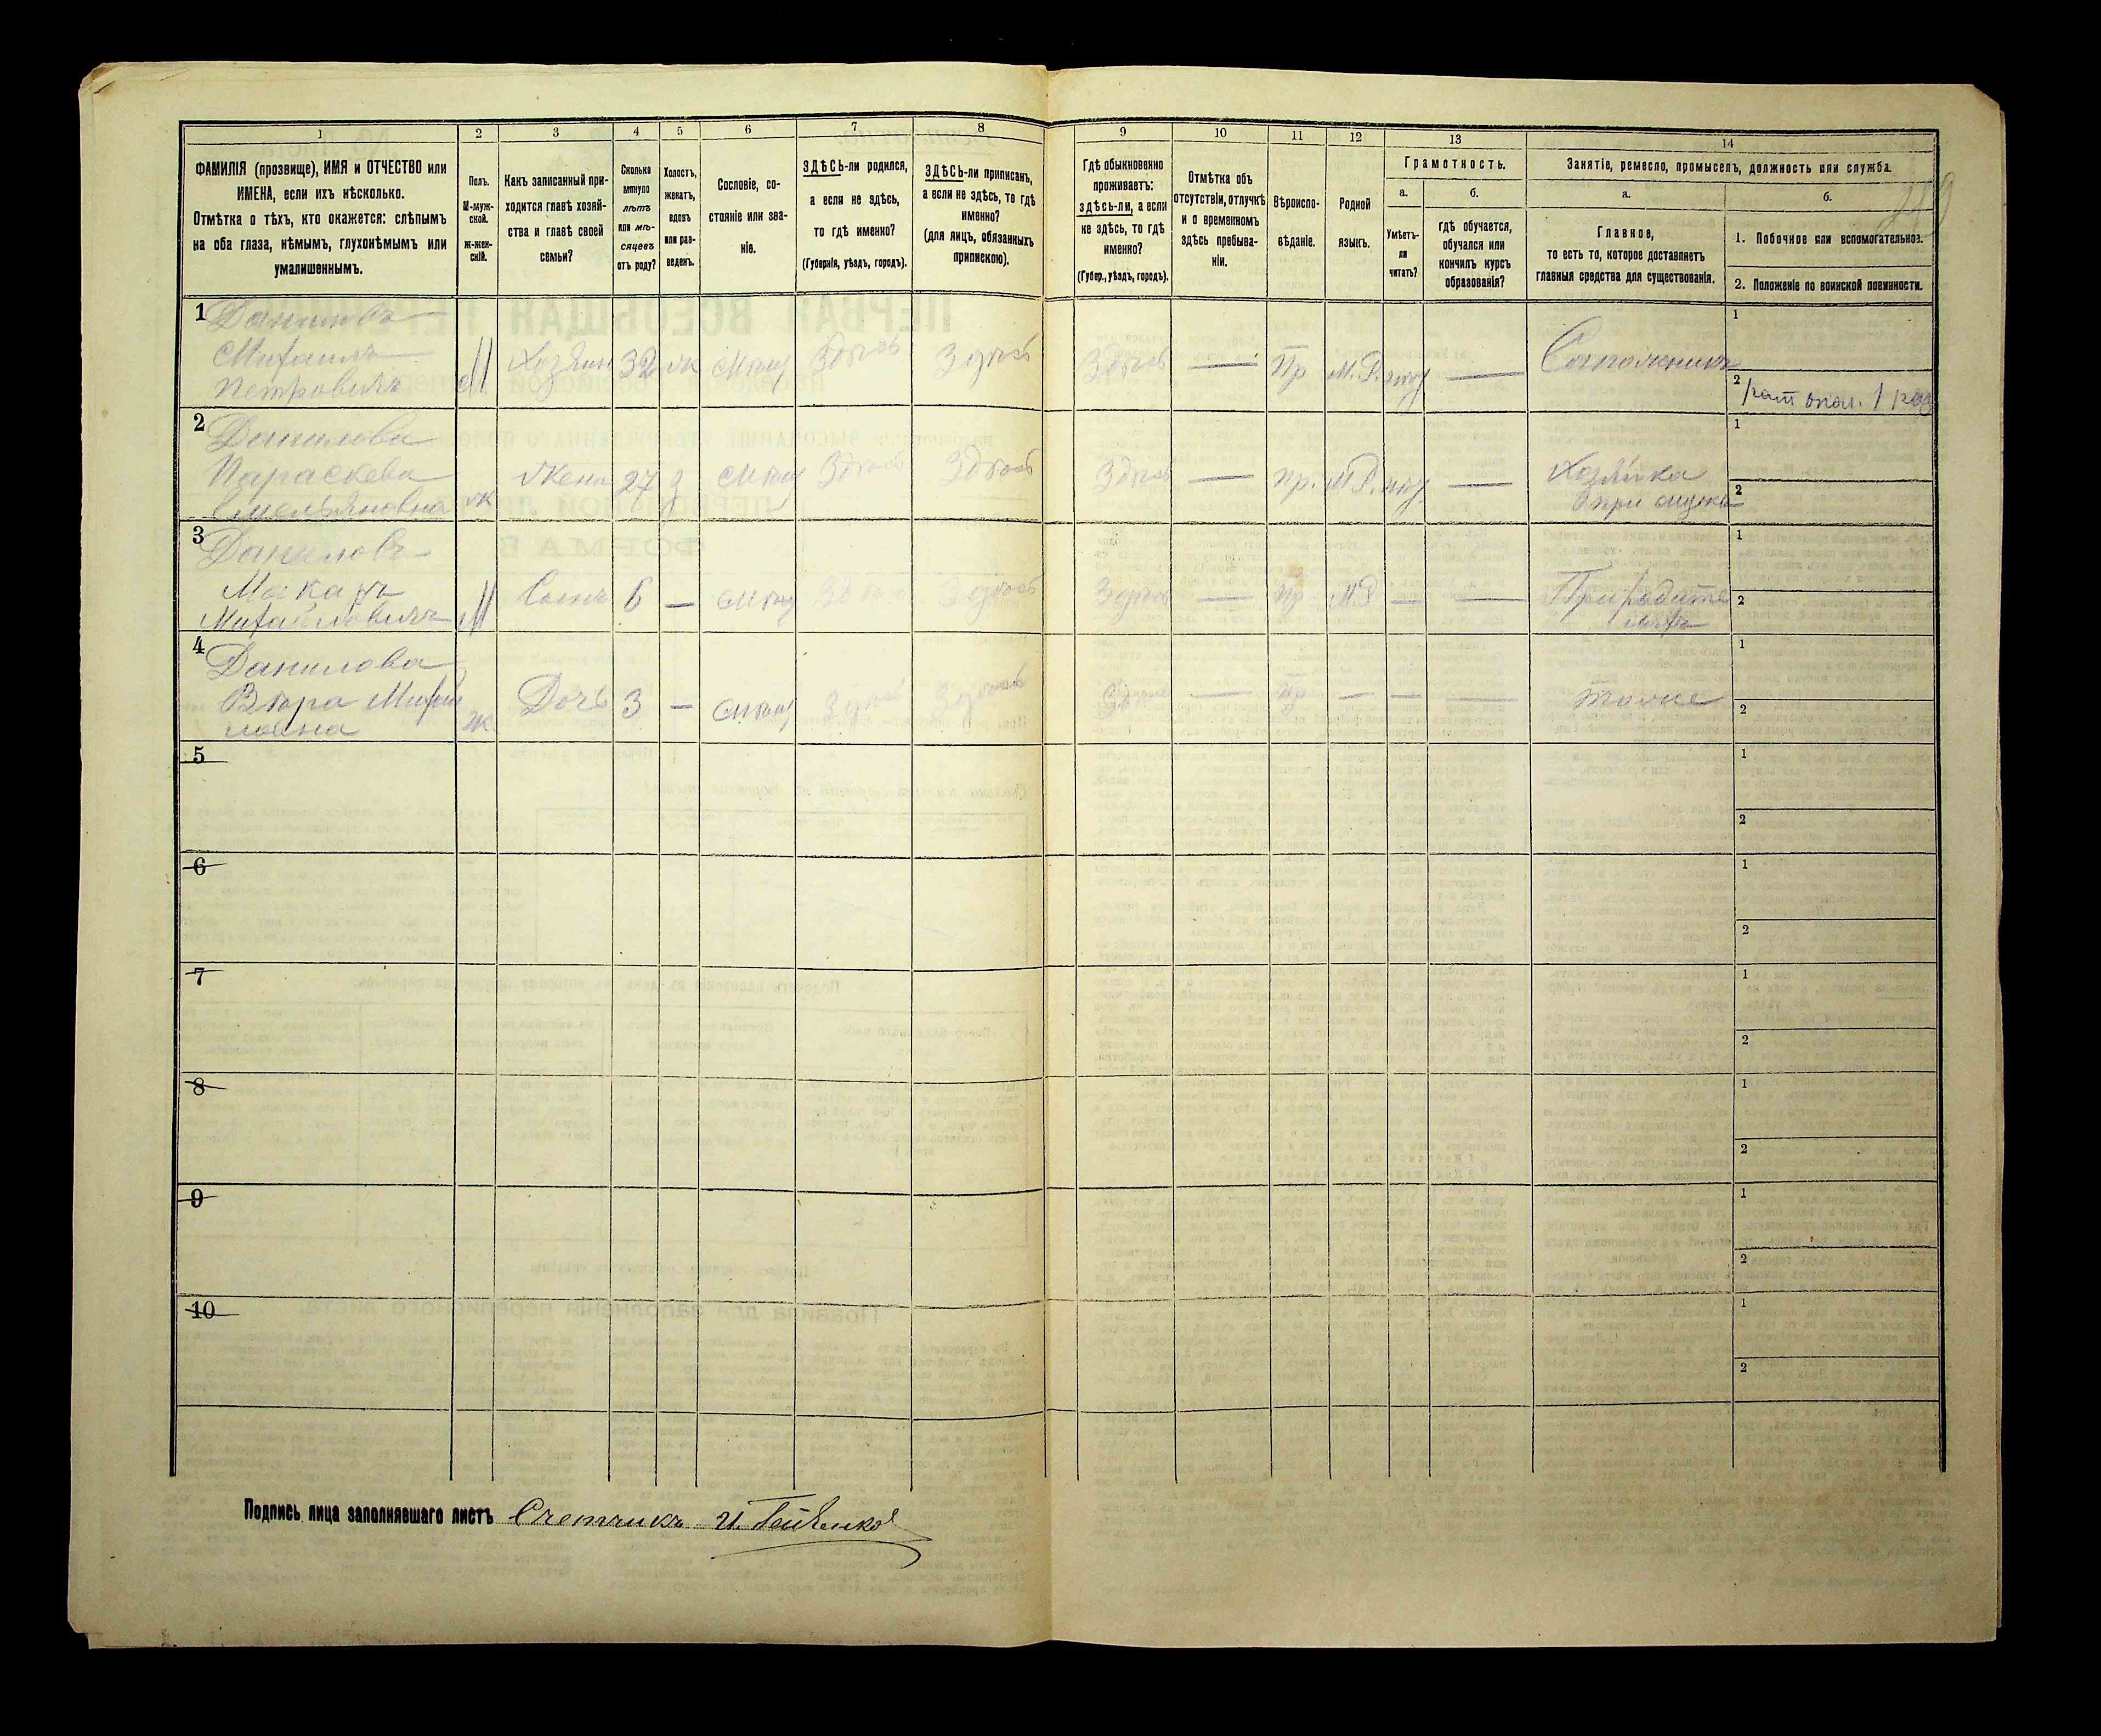 1
2
3
4
5
6
7
8
9
10
11
12
13
14
ФАМИЛІЯ (прозвище), ИМЯ и ОТЧЕСТВО или
ИМЕНА, если ихъ нѣсколько.
Отмѣтка о тѣхъ, кто окажется: слѣпымъ
на оба глаза, нѣмымъ, глухонѣмымъ или
умалишеннымъ.
Полъ.
М-муж-
ской.
Ж-жен-
скій.
Какъ записанный при-
ходится главѣ хозяй-
ства и главѣ своей
семьи?
Сколько
минуло
лѣтъ
или мѣ-
сяцевъ
отъ роду?
Холостъ,
женатъ,
вдовъ
или раз-
веденъ.
Сословіе, со-
стояніе или зва-
ніе.
ЗДѢСЬ-ли родился,
а если не здѣсь,
то гдѣ именно?
(Губернія, уѣздъ, городъ).
ЗДѢСЬ-ли приписанъ,
а если не здѣсь, то гдѣ
именно?
(для лицъ, обязанныхъ
припискою).
Гдѣ обыкновенно
проживаетъ:
здѣсь-ли, а если
не здѣсь, то гдѣ
именно?
(Губер., уѣздъ, городъ).
Отмѣтка объ
отсутствіи, отлучкѣ
и о временномъ
здѣсь пребыва-
ніи.
Вѣроиспо-
вѣданіе.
Родной
языкъ.
Грамотность.
а.
Умѣетъ-
ли
читать?
б.
гдѣ обучается,
обучался или
кончилъ курсъ
образованія?
Занятіе, ремесло, промыселъ, должность или служба.
а.
Главное,
то есть то, которое доставляетъ
главныя средства для существованія.
б.
1. Побочное или вспомогательное.
2. Положеніе по воинской повинности.
1
Даниловъ
Михаилъ
Петровичъ
М
Хозяин
32
ж
Мѣщ
Здѣсь
Здѣсь
Здѣсь
—
Пр
М.Р.
—
Сапожникъ
1
2
рат опол. 1 раз
2
Данилова
Параскева
Емельяновна
ж
Жена
27
з
Мѣщ
Здѣсь
Здѣсь
Здѣсь
—
пр.
М.Р.
—
Хозяйка
при мужѣ
1
2
3
Даниловъ
Макаръ
Михайловичъ
М
Сынъ
6
—
Мѣщ
Здѣсь
Здѣсь
Здѣсь
—
пр
М.Р
—
—
При родите
ляхъ
1
2
4
Данилова
Вѣра Михай
ловна
ж.
Дочь
3
—
Мѣщ
Здѣсь
Здѣсь
Здѣсь
—
пр
—
—
—
тоже
1
2
5
1
2
6
1
2
7
1
2
8
1
2
9
1
2
10
1
2
Подпись лица заполнявшаго листъ Счетчикъ И.